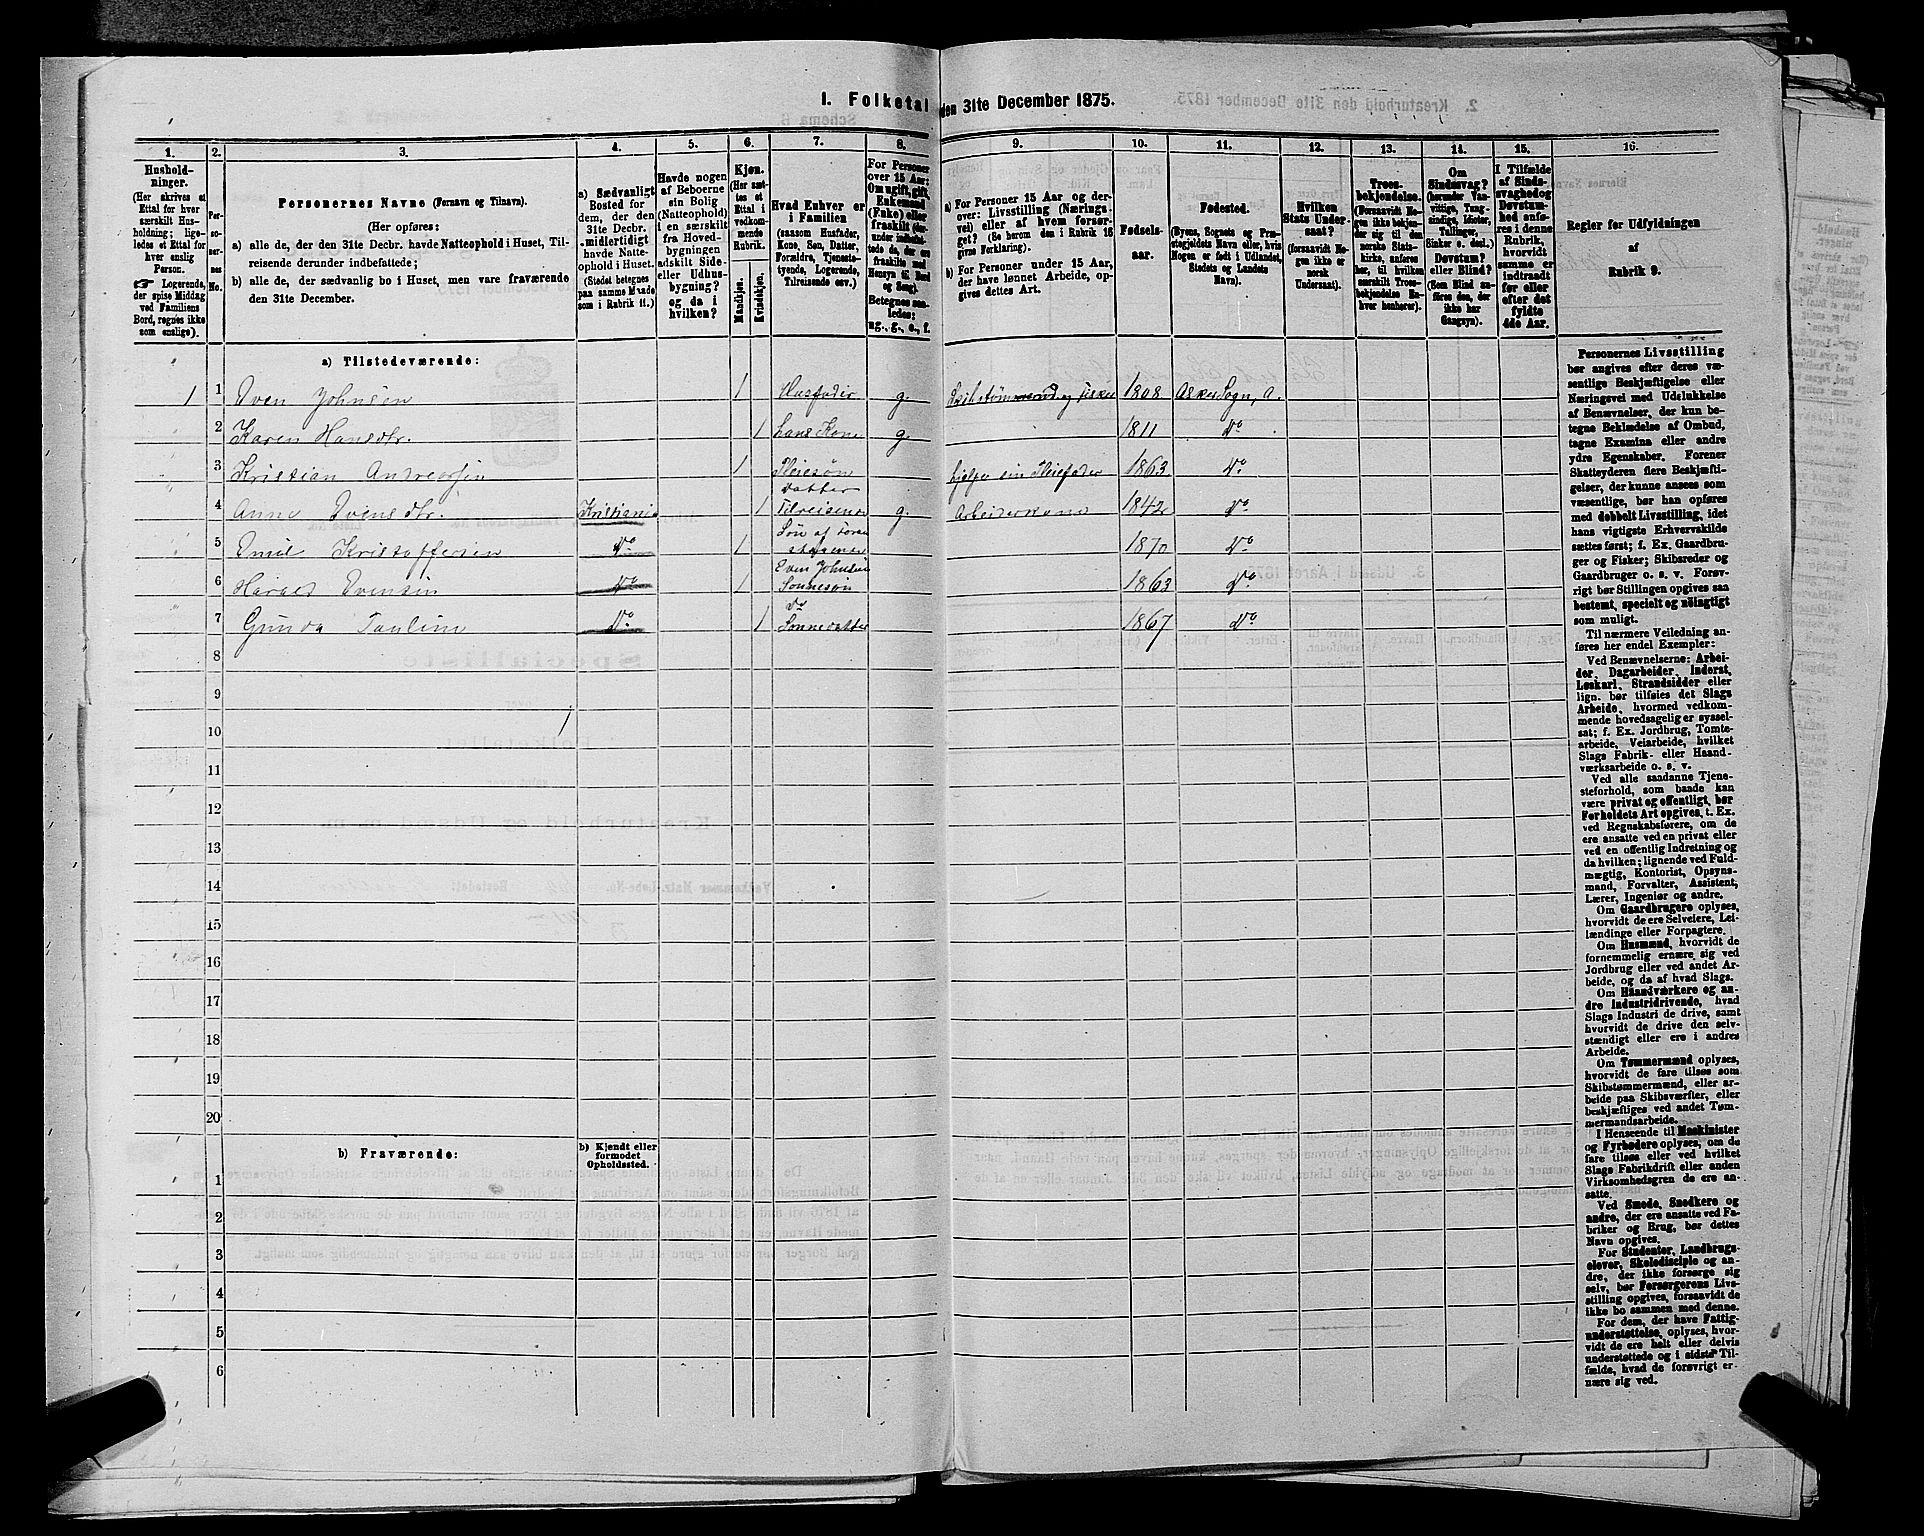 I. Folketal den 31te December 1875.
1. 2. 3. 4. 5. 6. 7. 8. 9. 10. 11. 12. 13. 14. 15. 16.
Hushold-
ninger.
(Her skrives et
Ettal for hver
særskilt Hus-
holdning; lige-
ledes et Ettal for
hver enslig
Person.
☞ Logerende,
der spise Middag
ved Familiens
Bord, regnes ikke
som enslige).
Per-
soner-
nes
No.
Personernes Navne (Fornavn og Tilnavn).
(Her opføres:
a) alle de, der den 31te Decbr. havde Natteophold i Huset, Til-
reisende derunder indbefattede;
b) alle de, der sædvanlig bo i Huset, men vare fraværende
den 31te December.
a) Sædvanligt
Bosted for
dem, der den
31te Decbr.
midlertidigt
havde Natte-
ophold i Huset.
(Stedet betegnes
paa samme Maade
som i Rubrik 11.)
Havde nogen
af Beboerne
sin Bolig
(Natteophold)
i en særskilt
fra Hoved-
bygningen
adskilt Side-
eller Udhus-
bygning?
og da i
hvilken?
Kjøn.
(Her sæt-
tes et
Ettal i
vedkom-
mende
Rubrik.
Mandkjøn.
Kvindekjøn.
Hvad Enhver er
i Familien
(saasom Husfader,
Kone, Søn, Datter,
Forældre, Tjeneste-
tyende, Logerende,
Tilreisende osv.)
For Personer
over 15 Aar:
Om ugift, gift,
Enkemand
(Enke) eller
fraskilt
Betegnes saa-
ledes:
ug., g., e., f.
a) For Personer 15 Aar og der-
over: Livsstilling (Nærings-
vei) eller af hvem forsør-
get? (Se herom den i Rubrik 16
givne Forklaring).
b) For Personer under 15 Aar,
der have lønnet Arbeide, op-
gives dettes Art.
Fødsels-
aar.
Fødested.
(Byens, Sognets og Præ-
stegjeldets Navn eller, hvis
Nogen er født i Udlandet,
Stedets og Landets
Navn).
Hvilken
Stats Under-
saat?
(forsaavidt No-
gen ikke er
norsk
Undersaat).
Troes-
bekjendelse.
(Forsaavidt No-
gen ikke bekjen-
der sig til den
norske Stats-
kirke, anføres
her, til hvilken
særskilt Troes-
bekjendelse En-
hver henhører).
Om
Sindssvag?
(herunder Van-
vittige, Tung-
sindige, Idioter,
Tullinger,
Sinker o. desl.)
Døvstum?
eller Blind?
(Som Blind an-
føres den, der
ikke har
Gangsyn).
I Tilfælde
af Sinds-
svaghed og
Døvstum-
hed anfø-
res i denne
Rubrik,
hvorvidt
samme er
indtraadt
før eller
efter det
fyldte
4de Aar.
Regler for Udfyldningen
af
Rubrik 9.
a) Tilstedeværende:
1 1 Even Johnsen 1 Husfader g. Skibstømmermand og Fisker 1808 Asker Sogn, A.
2 Karen Hansdtr. 1 hans Kone g. 1811 do
3 Kristian Andreassen 1 Pleiesøn hjelper sin Pleiefader 1863 do
Datter
4 Anne Evensdtr. Kristiania 1 Tilreisende g. Arbeiderkone 1842 do
Søn af Foran
5 Emil Kristoffersen do 1 staaende 1870 do
Even Johnsens
6 Harald Evensen do 1 Sønnesøn 1863 do
do
7 Gunda Pauline do 1 Sønnedatter 1867 do
8
9
10
11
12
13
14
15
16
17
18
19
20
b) Fraværende:
b) Kjendt eller
formodet
Opholdssted.
1
2
3
4
5
6
Personernes Livsstilling
bør angives efter deres væ-
sentlige Beskjæftigelse eller
Næringsvei med Udelukkelse
af Benævnelser, der kun be-
tegne Beklædelse af Ombud,
tagne Examina eller andre
ydre Egenskaber. Forener
Skatteyderen flere Beskjæfti-
gelser, der kunne ansees som
væsentlige, bør han opføres
med dobbelt Livsstilling, idet
hans vigtigste Erhvervskilde
sættes først; f. Ex. Gaardbru-
ger og Fisker; Skibsreder og
Gaardbruger o. s. v. Forøv-
rigt bør Stillingen opgives saa
bestemt, specielt og nøiagtigt
som muligt.
Til nærmere Veiledning an-
føres her endel Exempler:
Ved Benævnelserne: Arbei-
der, Dagarbeider, Inderst,
Løskarl, Strandsidder eller
lign. bør tilføies det Slags
Arbeide, hvormed vedkom-
mende hovedsagelig er syssel-
sat; f. Ex. Jordbrug, Tomte-
arbeide, Veiarbeide, hvilket
Slags Fabrik- eller Haand-
værksarbeide o. s. v.
Ved alle saadanne Tjene-
steforhold, som baade kan
være privat og offentligt, bør
Forholdets Art opgives, t. Ex.
ved Regnskabsførere, om de
ere ansatte ved en privat eller
ved en offentlig Indretning og
da hvilken; lignende ved Fuld-
mægtig, Kontorist, Opsyns-
mand, Forvalter, Assistent,
Lærer, Ingeniør og andre.
Om Gaardbrugere oplyses,
hvorvidt de ere Selveiere, Lei-
lændinge eller Forpagtere.
Om Husmænd, hvorvidt de
fornemmelig ernære sig ved
Jordbrug eller ved andet Ar-
beide, og da af hvad Slags.
Om Haandværkere og an-
dre Industridrivende, hvad
Slags Industri de drive, samt
hvorvidt de drive den selv-
stændigt eller ere i andres
Arbeide.
Om Tømmermænd oplyses,
hvorvidt de fare tilsøs som
Skibstømmermænd, eller ar-
beide paa Skibsværfter, eller
beskjæftiges ved andet Tøm-
mermandsarbeide.
I Henseende til Maskinister
og Fyrbødere oplyses, om de
fare tilsøs eller ved hvilket
Slags Fabrikdrift eller anden
Virksomhedsgren de ere an-
satte.
Ved Smede, Snedkere og
andre, der ere ansatte ved Fa-
briker og Brug, bør dettes
Navn opgives.
For Studenter, Landbrugs-
elever, Skoledisciple og an-
dre, der ikke forsørge sig
selv, bør Forsørgerens Livs-
stilling opgives, forsaavidt de
ikke bo sammen med denne.
For dem, der have Fattig-
understøttelse, oplyses, hvor-
vidt de ere helt eller delvis
understøttede og i sidste Til-
fælde, hvad de forøvrigt er-
nære sig ved.